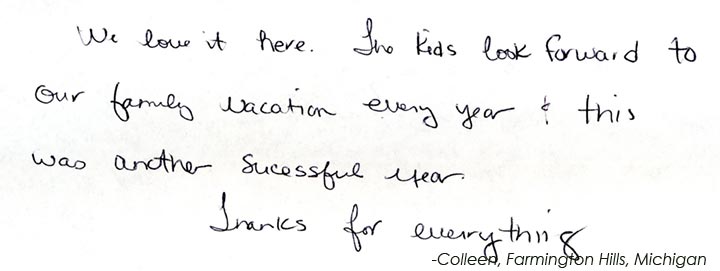 We love it here. The kids look forward to
our family vacation every year & this
was another sucessful year.
Thanks for everything
-Colleen, Farmington Hills, Michigan